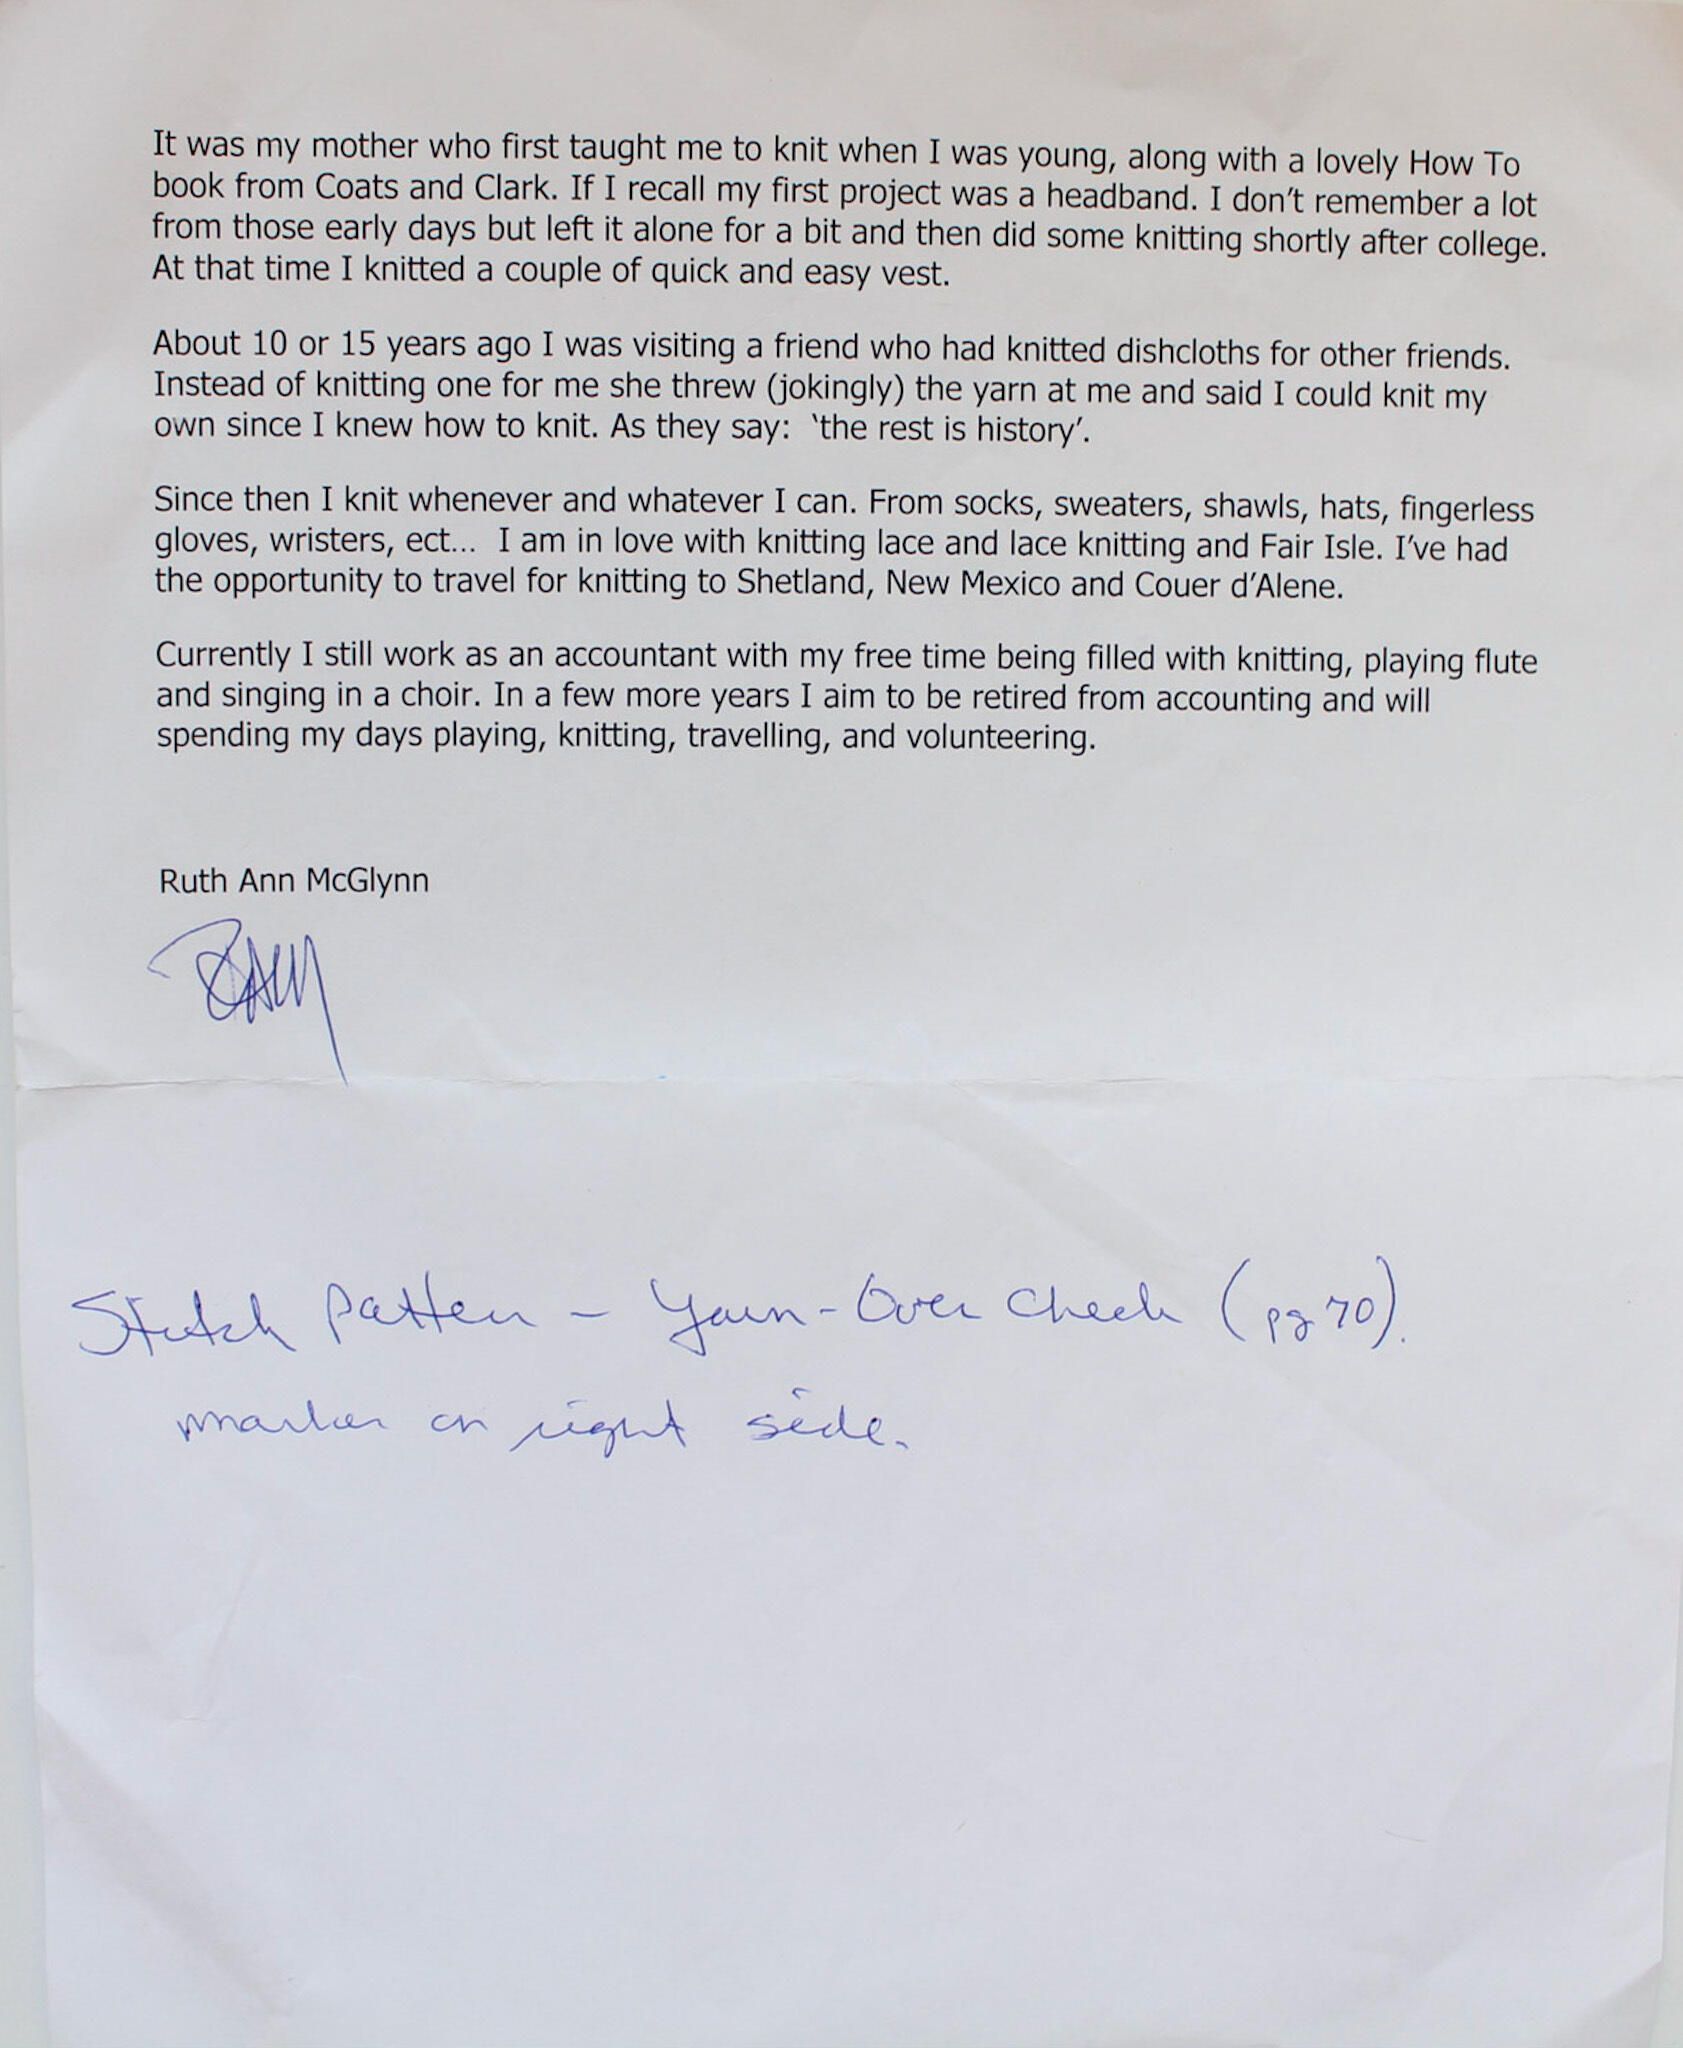 It was my mother who first taught me to knit when I was young, along with a lovely How To
book from Coats and Clark. If I recall my first project was a headband. I don't remember a lot
from those early days but left it alone for a bit and then did some knitting shortly after college.
At that time I knitted a couple of quick and easy vest.
About 10 or 15 years ago I was visiting a friend who had knitted dishcloths for other friends.
Instead of knitting one for me she threw (jokingly) the yarn at me and said I could knit my
own since I knew how to knit. As they say:  ‘the rest is history’.
Since then I knit whenever and whatever I can. From socks, sweaters, shawls, hats, fingerless
gloves, wristers, ect...  I am in love with knitting lace and lace knitting and Fair Isle. I've had
the opportunity to travel for knitting to Shetland, New Mexico and Couer d'Alene.
Currently I still work as an accountant with my free time being filled with knitting, playing flute
and singing in a choir. In a few more years I aim to be retired from accounting and will
spending my days playing, knitting, travelling, and volunteering.
Ruth Ann McGlynn
Stitch Pattern - Yarn-Over Check (pg 70).
marker on right side.